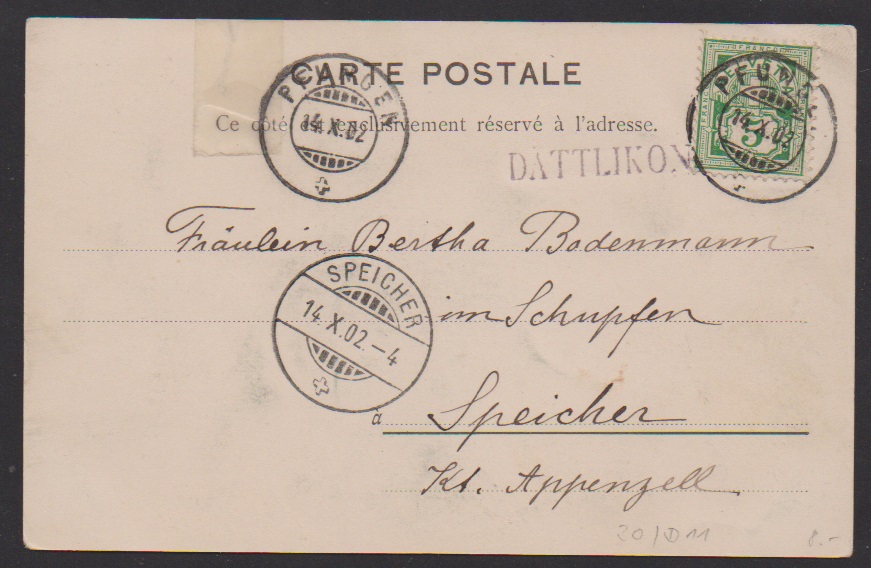 CARTE POSTALE
Ce côté est exclusivement réservé à l'adresse.
PFUNGEN
14.X.02
PFUNGEN
14.X.02
FRANCO
5
DÄTTLIKON
Fräulein Bertha Bodenmann
im Schupfen
SPEICHER
14.X.02.–4
à Speicher
Kt. Appenzell
20/D11
8.-